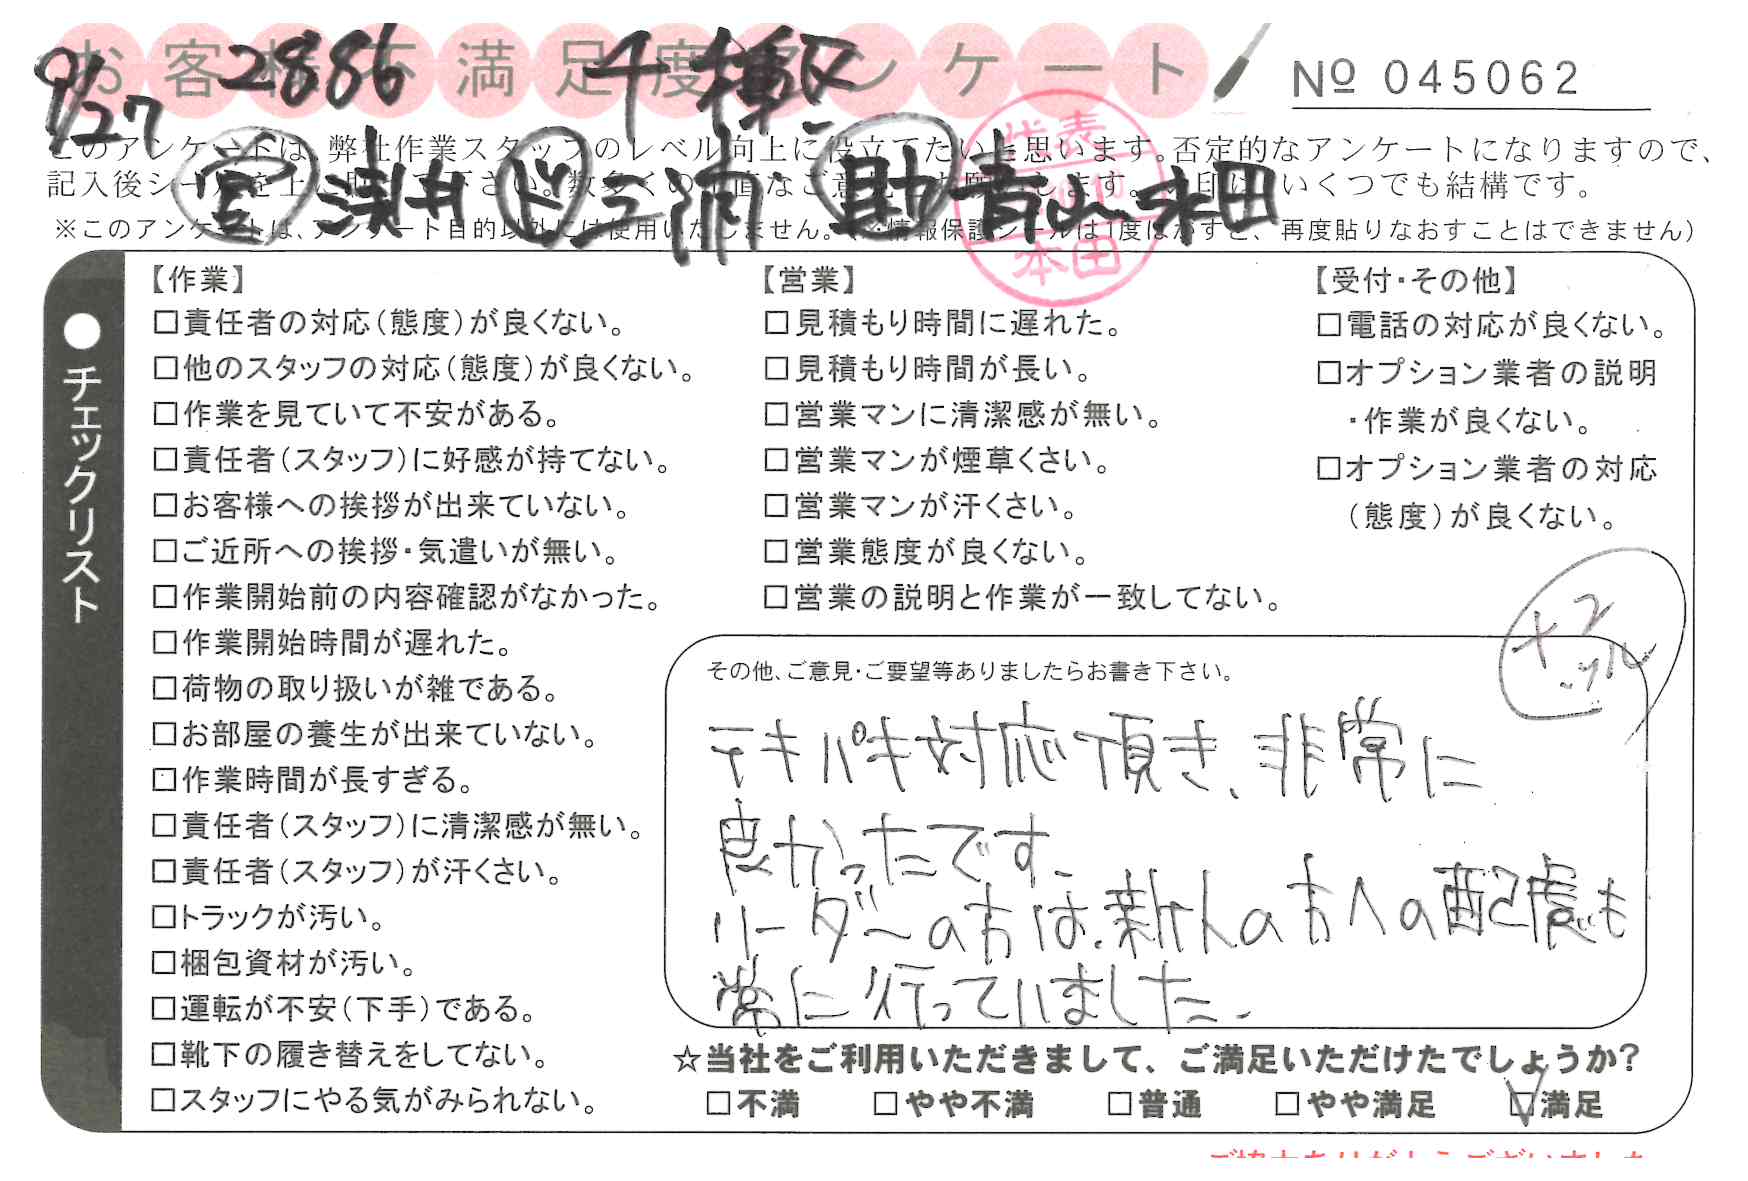 お客様不満足度アンケート
No 045062
9/27 2886 千種区
このアンケートは、弊社作業スタッフのレベル向上に役立てたいと思います。否定的なアンケートになりますので、
記入後シールを上に貼って下さい。数多くの正直なご意見をお願いします。 印は、いくつでも結構です。
※このアンケートは、アンケート目的以外には使用いたしません。（※情報保護シールは1度はがすと、再度貼りなおすことはできません）
営 浅井 ド 三浦 助 青山 永田
代表
本田
●チェックリスト
【作業】
□責任者の対応（態度）が良くない。
□他のスタッフの対応（態度）が良くない。
□作業を見ていて不安がある。
□責任者（スタッフ）に好感が持てない。
□お客様への挨拶が出来ていない。
□ご近所への挨拶・気遣いが無い。
□作業開始前の内容確認がなかった。
□作業開始時間が遅れた。
□荷物の取り扱いが雑である。
□お部屋の養生が出来ていない。
□作業時間が長すぎる。
□責任者（スタッフ）に清潔感が無い。
□責任者（スタッフ）が汗くさい。
□トラックが汚い。
□梱包資材が汚い。
□運転が不安（下手）である。
□靴下の履き替えをしてない。
□スタッフにやる気がみられない。
【営業】
□見積もり時間に遅れた。
□見積もり時間が長い。
□営業マンに清潔感が無い。
□営業マンが煙草くさい。
□営業マンが汗くさい。
□営業態度が良くない。
□営業の説明と作業が一致してない。
【受付・その他】
□電話の対応が良くない。
□オプション業者の説明
・作業が良くない。
□オプション業者の対応
（態度）が良くない。
+2
その他、ご意見・ご要望等ありましたらお書き下さい。
テキパキ対応頂き、非常に
良かったです。
リーダーの方は、新人の方への配慮も
常に行っていました。
☆当社をご利用いただきまして、ご満足いただけたでしょうか？
□不満 □やや不満 □普通 □やや満足 ☑満足
ご協力ありがとうございました